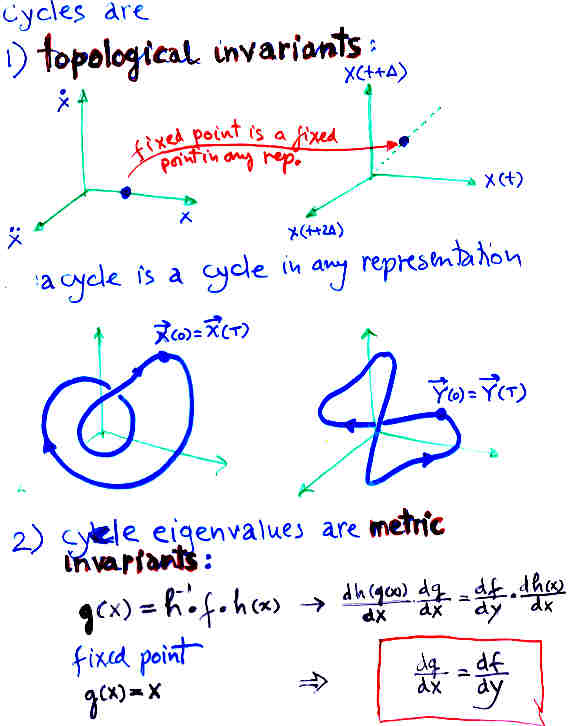 cycles are
1) topological invariants:
ẋ
x(t+Δ)
fixed point is a fixed
point in any rep.
x
x(t)
ẍ
x(t+2Δ)
: a cycle is a cycle in any representation
x⃗(0)=x⃗(T)
y⃗(0)=y⃗(T)
2) cycle eigenvalues are metric
invariants:
g(x) = h⁻¹∘f∘h(x) → dh(g(x))/dx · dg/dx = df/dy · dh(x)/dx
fixed point
g(x)=x ⇒ dg/dx = df/dy